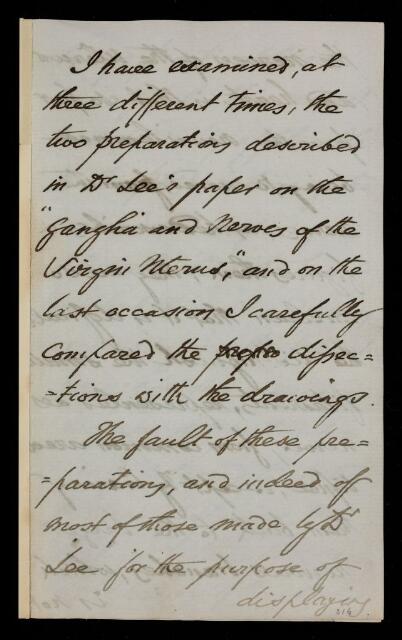 I have examined, at
three different times, the
two preparations described
in Dr Lee's paper on the
"Ganglia and Nerves of the
Virgin Uterus," and on the
last occasion I carefully
compared the dissec=
=tions with the drawings.
The fault of these pre=
=parations, and indeed of
most of those made by Dr
Lee for the purpose of
displaying
314